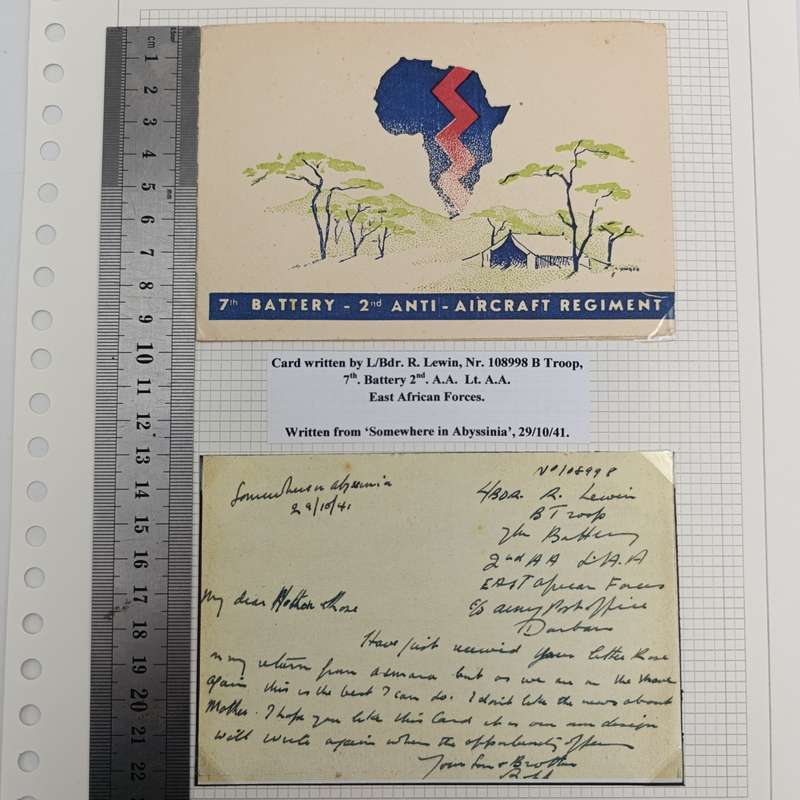 cm
1
2
3
4
5
6
7
8
9
10
11
12
13
14
15
16
17
18
19
20
21
22
7th BATTERY - 2nd ANTI-AIRCRAFT REGIMENT
Card written by L/Bdr. R. Lewin, Nr. 108998 B Troop,
7th. Battery 2nd. A.A. Lt. A.A.
East African Forces.
Written from ‘Somewhere in Abyssinia’, 29/10/41.
No 108998
Somewhere in abyssinia
29/10/41
L/BDR. R. Lewin
B Troop
7th Battery
2nd AA Lt. A.A
EAST African Forces
c/o army Post office
Durban
My dear Mother & Rose
Have just received your letter Rose
on my return from asmara but as we are on the move
again this is the best I can do. I don't like the news about
Mother. I hope you like this Card it is our own design
will write again when the opportunity offers
Your Son & Brother